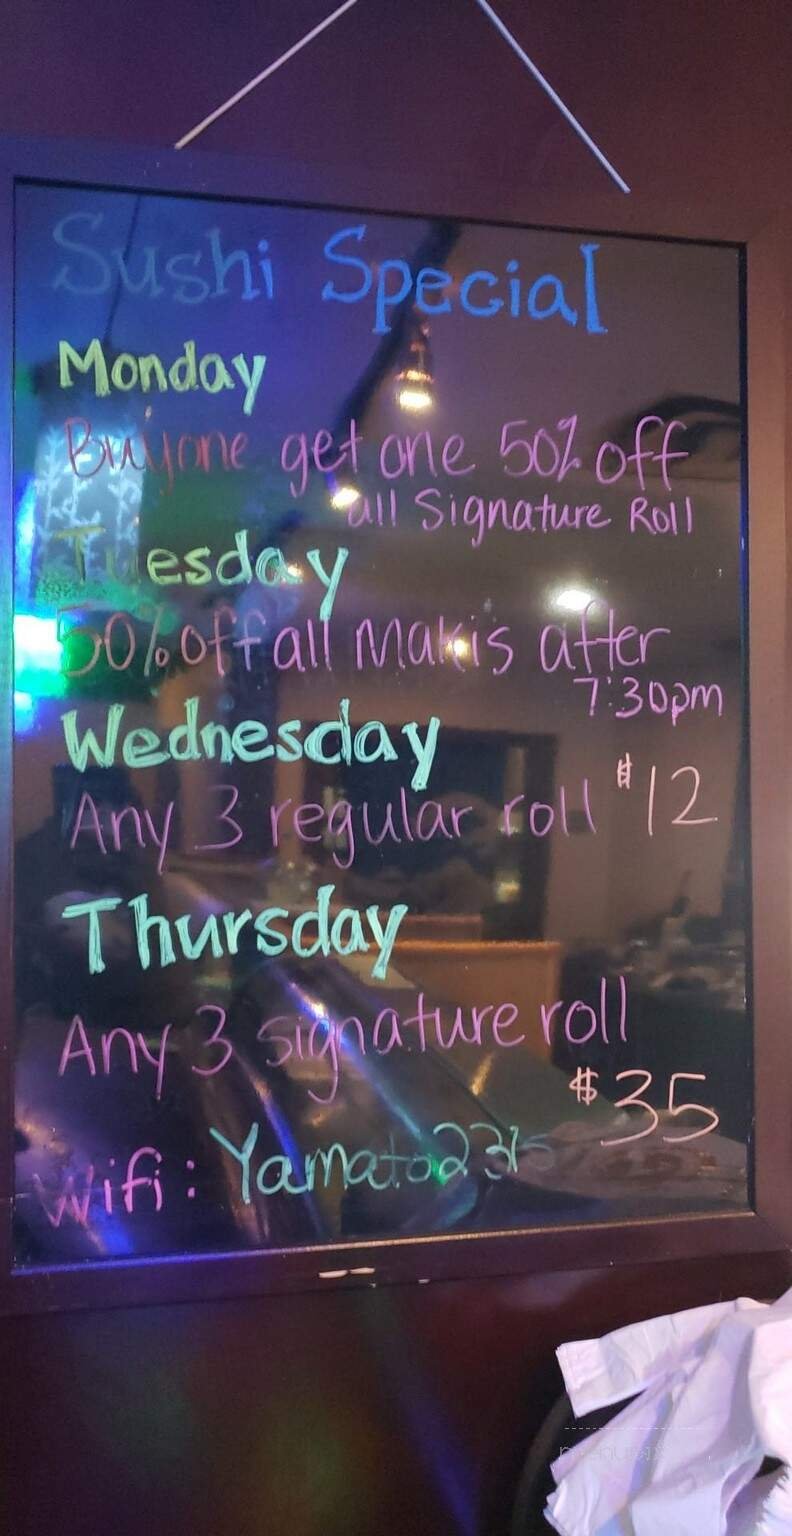 Sushi Special
Monday
Buy one get one 50% off
all Signature Roll
Tuesday
50% off all Makis after
7:30pm
Wednesday
Any 3 regular roll $12
Thursday
Any 3 signature roll
$35
Wifi: Yamato2315